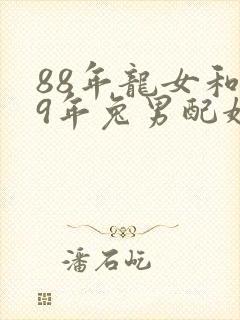 88年龍女和
9年兔男配
潘石屹